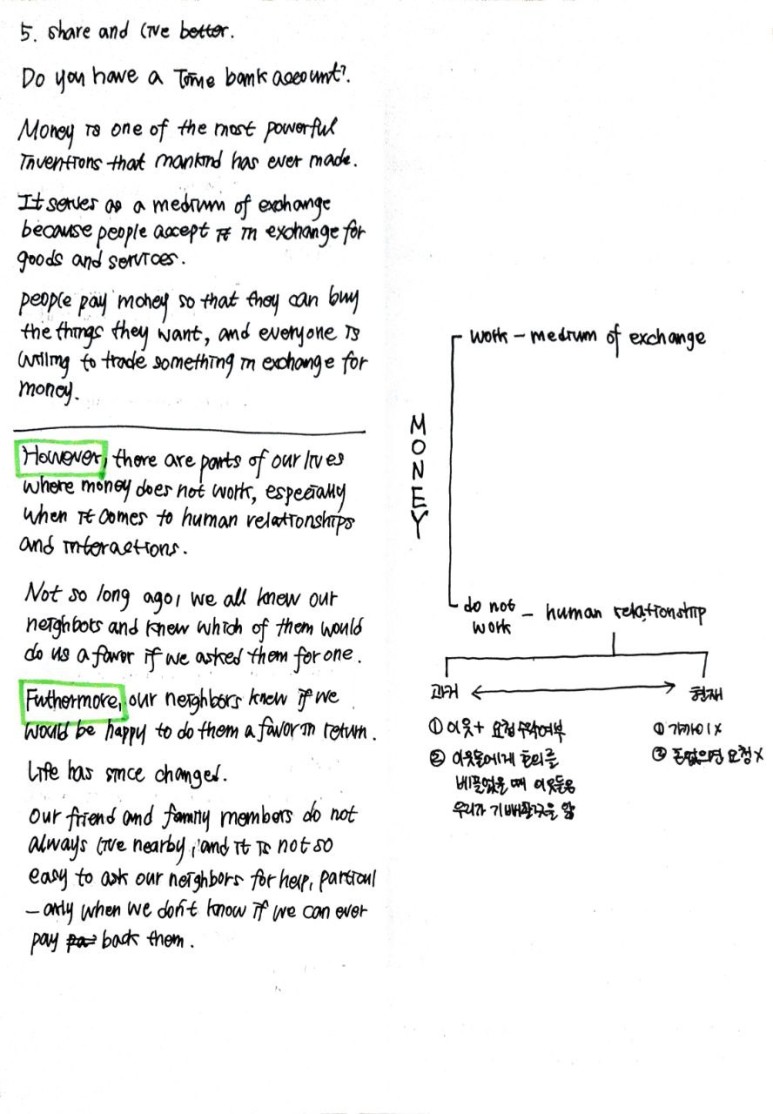 5. share and live better.
Do you have a Time bank account?
Money is one of the most powerful
inventions that mankind has ever made.
It serves as a medium of exchange
because people accept it in exchange for
goods and services.
people pay money so that they can buy
the things they want, and everyone is
willing to trade something in exchange for
money.
However, there are parts of our lives
where money does not work, especially
when it comes to human relationships
and interactions.
Not so long ago, we all knew our
neighbors and knew which of them would
do us a favor if we asked them for one.
Futhermore, our neighbors knew if we
would be happy to do them a favor in return.
Life has since changed.
our friend and family members do not
always live nearby, and it is not so
easy to ask our neighbors for help, particul
- arly when we don't know if we can ever
pay back them.
MONEY
work - medium of exchange
do not work - human relationship
과거
현재
① 이웃 + 요청 수락여부
② 이웃들에게 호의를
베풀었을 때 이웃들은
우리가 기뻐할 것을 앎
① 가까이 X
② 돈없으면 요청 X